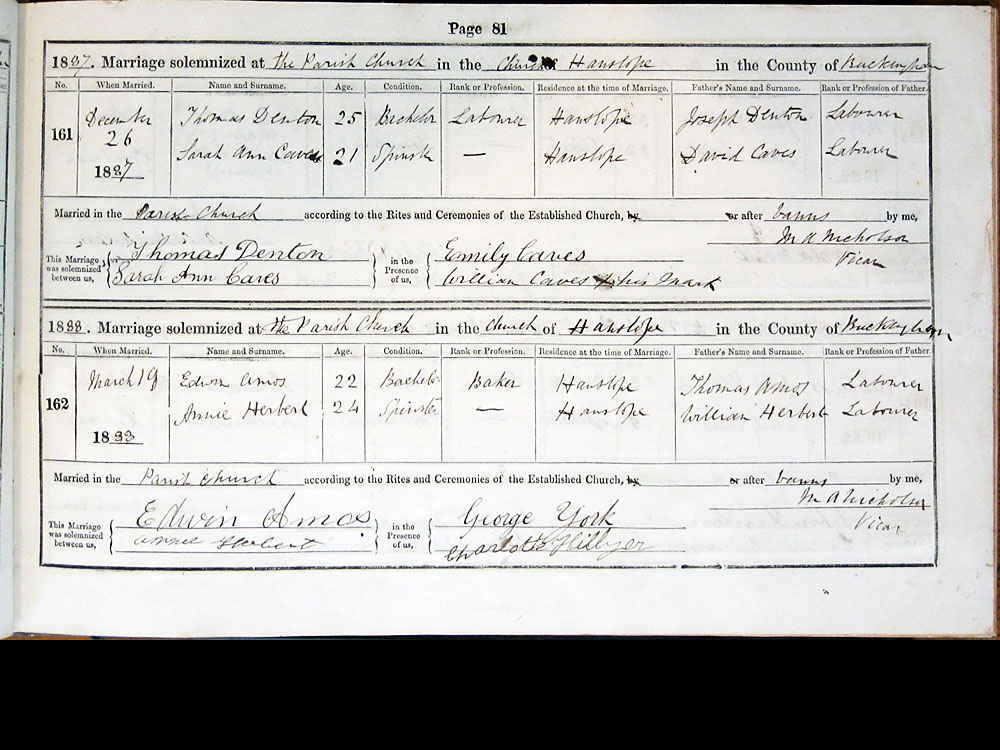 Page 81
1887. Marriage solemnized at the Parish Church in the Church of Hanslope in the County of Buckingham
No. When Married. Name and Surname. Age. Condition. Rank or Profession. Residence at the time of Marriage. Father's Name and Surname. Rank or Profession of Father.
161 December 26 1887 Thomas Denton 25 Bachelor Labourer Hanslope Joseph Denton Labourer
Sarah Ann Caves 21 Spinster — Hanslope David Caves Labourer
Married in the Parish Church according to the Rites and Ceremonies of the Established Church, by or after banns by me,
M A Nicholson
Vicar
This Marriage was solemnized between us, Thomas Denton in the Presence of us, Emily Caves
Sarah Ann Caves William Caves X his Mark
1888. Marriage solemnized at the Parish Church in the Church of Hanslope in the County of Buckingham
No. When Married. Name and Surname. Age. Condition. Rank or Profession. Residence at the time of Marriage. Father's Name and Surname. Rank or Profession of Father.
162 March 19 1888 Edwin Amos 22 Bachelor Baker Hanslope Thomas Amos Labourer
Annie Herbert 24 Spinster — Hanslope William Herbert Labourer
Married in the Parish Church according to the Rites and Ceremonies of the Established Church, by or after banns by me,
M A Nicholson
Vicar
This Marriage was solemnized between us, Edwin Amos in the Presence of us, George York
Annie Herbert Charlotte Hillyer